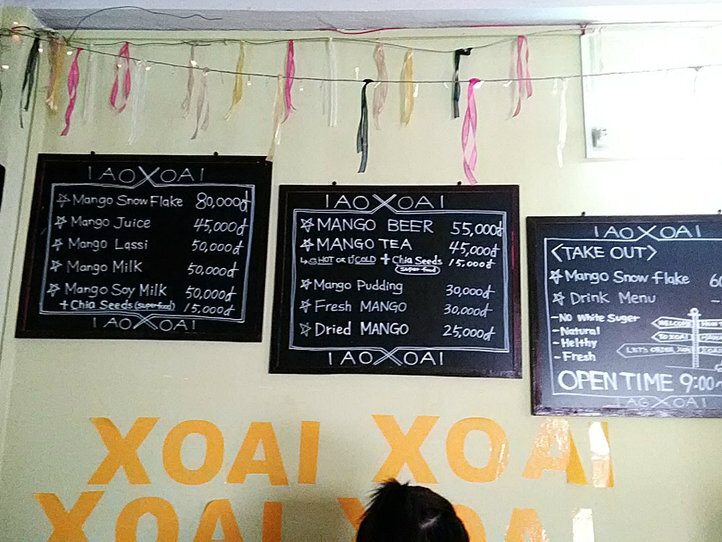 IAOXOAI
Mango Snow Flake 80,000đ
Mango Juice 45,000đ
Mango Lassi 50,000đ
Mango Milk 50,000đ
Mango Soy Milk 50,000đ
+ Chia Seeds (superfood) 15,000đ
IAOXOAI
IAOXOAI
MANGO BEER 55,000đ
MANGO TEA 45,000đ
HOT OR COLD + Chia Seeds 15,000đ
(Super food)
Mango Pudding 30,000đ
Fresh MANGO 30,000đ
Dried MANGO 25,000đ
IAOXOAI
IAOXOAI
<TAKE OUT>
Mango Snow flake
Drink Menu
-No White Suger
-Natural
-Helthy
-Fresh
WELCOME
TO XOAI
OPEN TIME 9:00~
IAOXOA
XOAI XOAI
XOAI XOAI